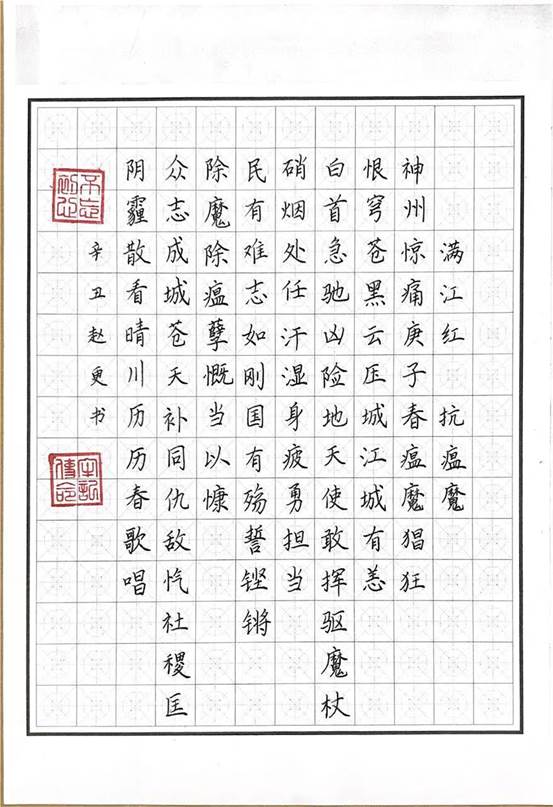 满江红 抗瘟魔
神州惊痛庚子春瘟魔猖狂
恨穹苍黑云压城江城有恙
白首急驰凶险地天使敢挥驱魔杖
硝烟处任汗湿身疲勇担当
民有难志如刚国有殇誓铿锵
除魔除瘟孽慨当以慷
众志成城苍天补同仇敌忾社稷匡
阴霾散看晴川历历春歌唱
辛丑赵更书
不忘初心
牢記使命